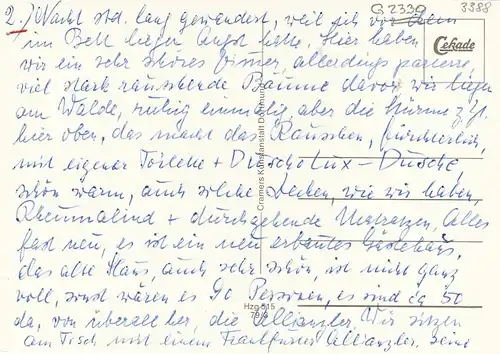 2.) Nacht std. lang gewandert, weil ich vor dem
im Bett liegen Angst hatte. Hier haben
wir ein sehr schönes Zimmer, allerdings parterre,
viel stark rauschende Bäume davor, wir liegen
am Walde, ruhig einmalig, aber die Stürme z. Zt.
hier oben, das macht das Rauschen, fürchterlich,
mit eigener Toilette + Dusche Lux-Dusche,
schön warm, auch solche Decken, wie wir haben,
Rheumalind + durchgehende Matratzen. Alles
fast neu, es ist ein neu erbautes Gästehaus,
das alte Haus, auch sehr schön, ist nicht ganz
voll, sonst wären es 90 Personen, es sind ca 50
da, von überall her, die Allianzler. Wir sitzen
am Tisch mit einem Frankfurter Allianzler. Seine
G 2339
3388
Cekade
Cramers Kunstanstalt Dortmund
Hzg 515